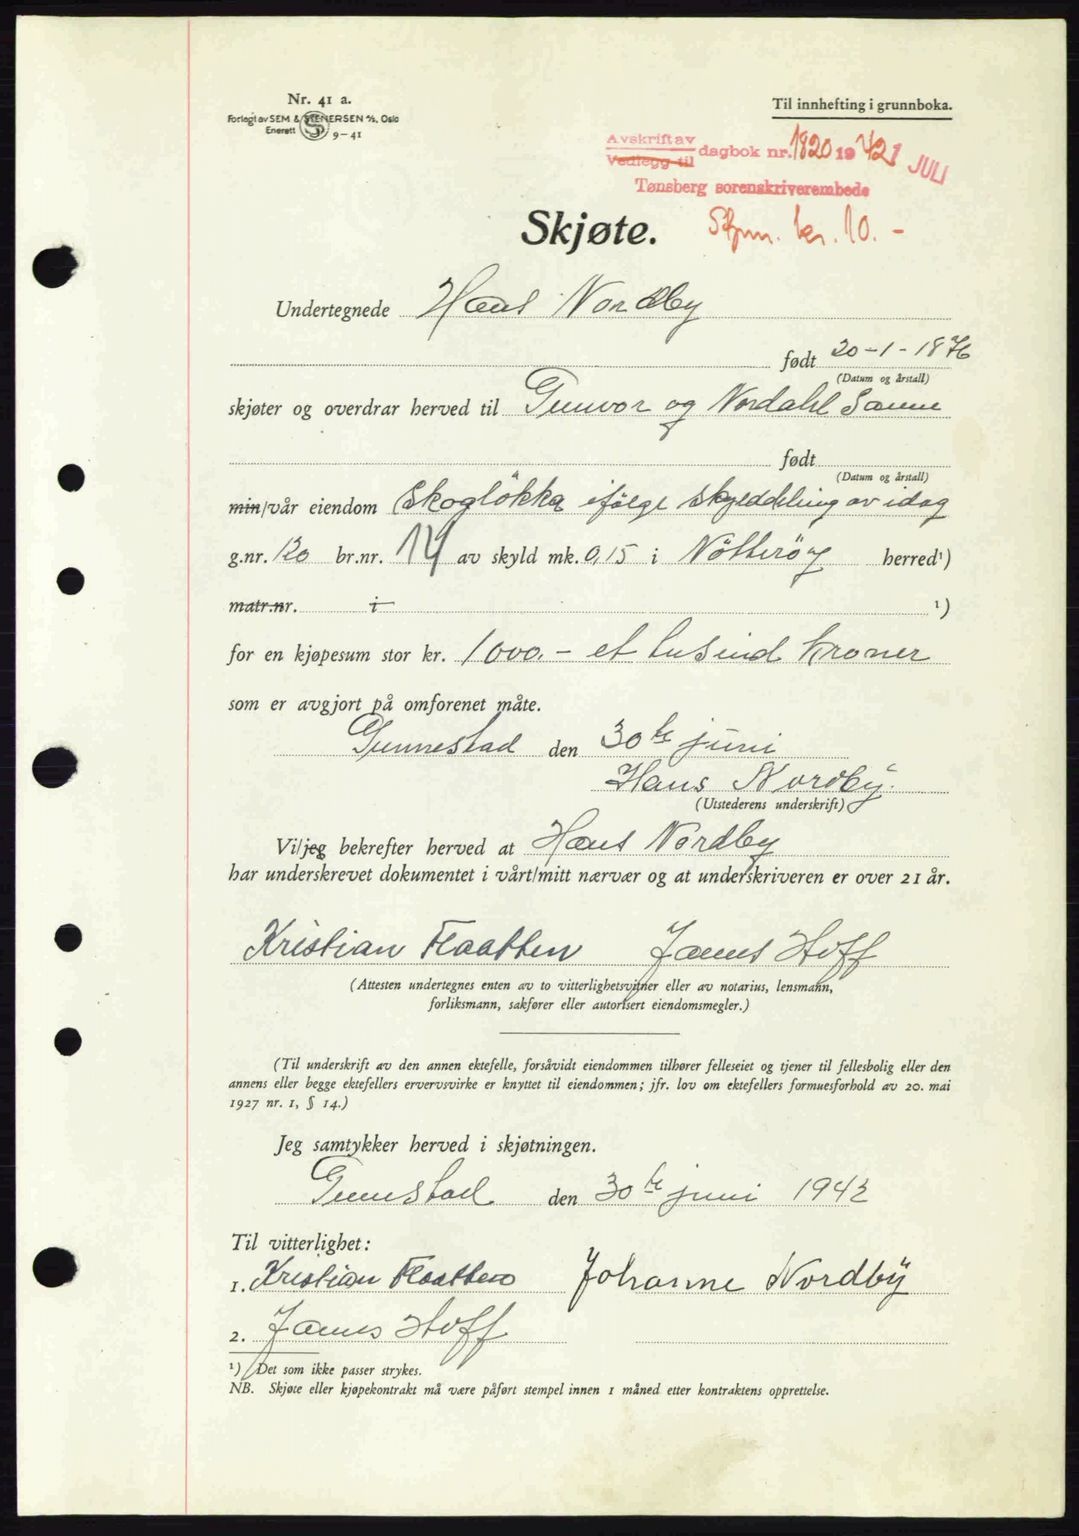 Nr. 41 a.
Forlagt av SEM & STENERSEN A/S, Oslo
Enerett 9-41
Til innhefting i grunnboka.
Avskrift av
Vedlegg til dagbok nr. 1820 1942 1 JULI
Tønsberg sorenskriverembede
Skjøte.
Stpm. kr. 10.-
Undertegnede Hans Nordby
født 20-1-1876
(Datum og årstall)
skjøter og overdrar herved til Gunvor og Nordahl Sanne
født
(Datum og årstall)
min/vår eiendom Skogløkka ifølge skylddeling av idag
g.nr. 130 br.nr. 14 av skyld mk. 0,15 i Nötteröy herred¹)
matr.nr. i ¹)
for en kjøpesum stor kr. 1000.- et tusind kroner
som er avgjort på omforenet måte.
Gunnestad den 30te juni
Hans Nordby.
(Utstederens underskrift)
Vi/jeg bekrefter herved at Hans Nordby
har underskrevet dokumentet i vårt/mitt nærvær og at underskriveren er over 21 år.
Kristian Flaatten James Hoff
(Attesten undertegnes enten av to vitterlighetsvitner eller av notarius, lensmann,
forliksmann, sakfører eller autorisert eiendomsmegler.)
(Til underskrift av den annen ektefelle, forsåvidt eiendommen tilhører felleseiet og tjener til fellesbolig eller den
annens eller begge ektefellers ervervsvirke er knyttet til eiendommen; jfr. lov om ektefellers formuesforhold av 20. mai
1927 nr. 1, § 14.)
Jeg samtykker herved i skjøtningen.
Gunnestad den 30te juni 1942
Til vitterlighet:
1. Kristian Flaatten Johanne Nordby
2. James Hoff
¹) Det som ikke passer strykes.
NB. Skjøte eller kjøpekontrakt må være påført stempel innen 1 måned etter kontraktens opprettelse.